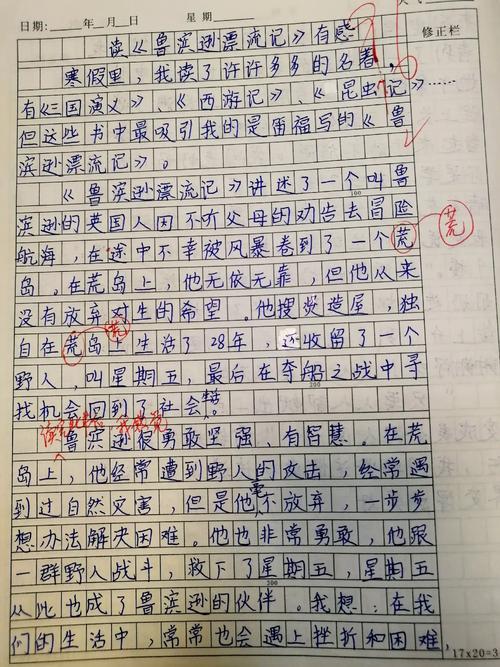 日期：____年__月__日 星期____ 修正栏
读《鲁滨逊漂流记》有感
寒假里，我读了许许多多的名著，
有《三国演义》、《西游记》、《昆虫记》……
但这些书中最吸引我的是笛福写的《鲁
滨逊漂流记》。
《鲁滨逊漂流记》讲述了一个叫鲁
100
滨逊的英国人因不听父母的劝告去冒险
航海，在途中不幸被风暴卷到了一个荒 荒
岛。在荒岛上，他无依无靠，但他从来
没有放弃对生的希望。他搜炎造屋，独
自在荒岛上生活了28年，还收留了一个
荒
野人，叫星期五，最后在夺船之战中寻
200
找机会回到了社会。
鲁滨逊很勇敢坚强、有智慧。在荒
岛上，他经常遭到野人的攻击，经常遇
到过自然灾害，但是他毫不放弃，一步步
想办法解决困难。他也非常勇敢，他跟
一群野人战斗，救下了星期五，星期五
300
从此也成了鲁滨逊的伙伴。我想：在我
们的生活中，常常也会遇上挫折和困难，
17×20=3